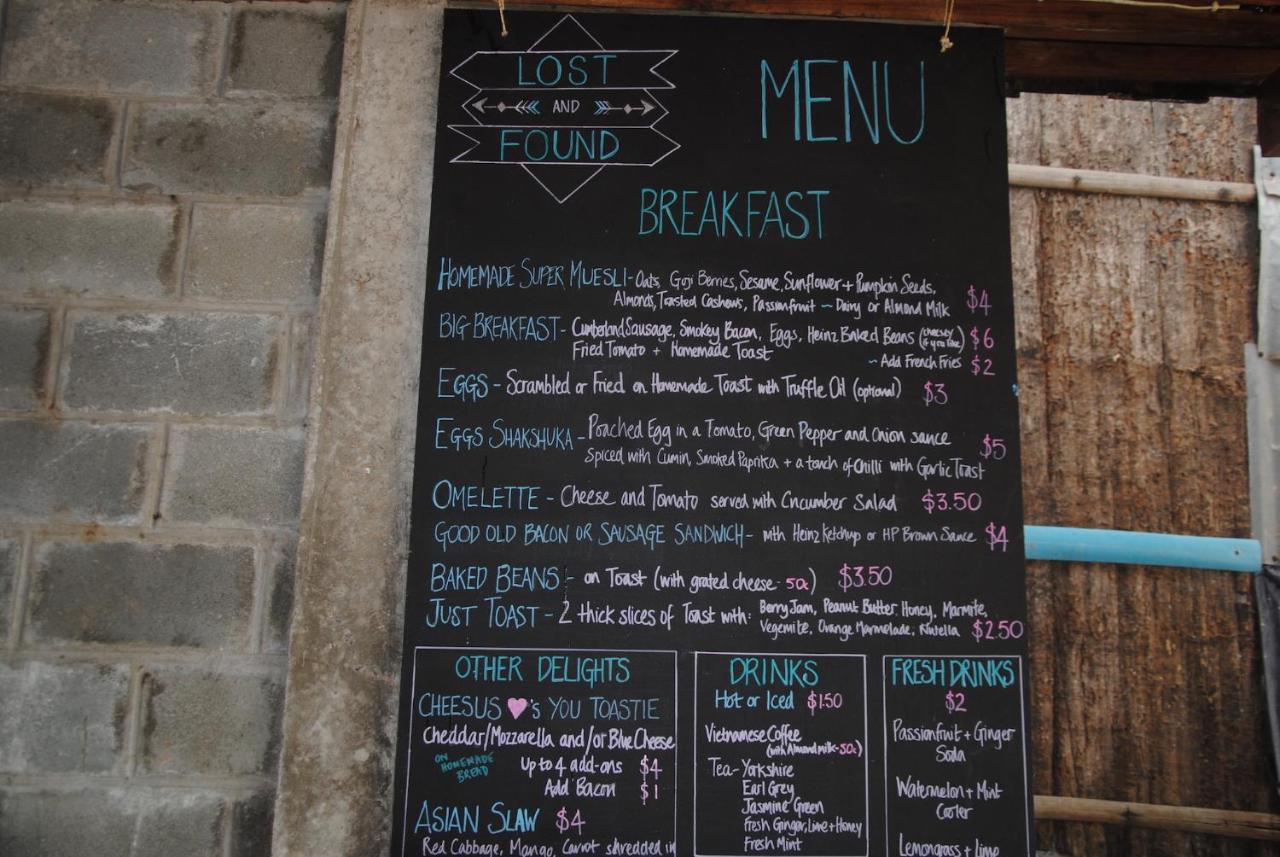 LOST
AND
FOUND
MENU
BREAKFAST
HOMEMADE SUPER MUESLI - Oats, Goji Berries, Sesame, Sunflower + Pumpkin Seeds,
Almonds, Toasted Cashews, Passionfruit ~ Dairy or Almond Milk $4
BIG BREAKFAST - Cumberland Sausage, Smokey Bacon, Eggs, Heinz Baked Beans (cheesey if you like) $6
Fried Tomato + Homemade Toast ~ Add French Fries $2
EGGS - Scrambled or Fried on Homemade Toast with Truffle Oil (optional) $3
EGGS SHAKSHUKA - Poached Egg in a Tomato, Green Pepper and Onion sauce $5
Spiced with Cumin, Smoked Paprika + a touch of Chilli with Garlic Toast
OMELETTE - Cheese and Tomato served with Cucumber Salad $3.50
GOOD OLD BACON OR SAUSAGE SANDWICH - with Heinz Ketchup or HP Brown Sauce $4
BAKED BEANS - on Toast (with grated cheese - 50c) $3.50
JUST TOAST - 2 thick slices of Toast with: Berry Jam, Peanut Butter, Honey, Marmite,
Vegemite, Orange Marmelade, Nutella $2.50
OTHER DELIGHTS
CHEESUS ♥'s YOU TOASTIE
Cheddar/Mozzarella and/or Blue Cheese
ON HOMEMADE BREAD
Up to 4 add-ons $4
Add Bacon $1
ASIAN SLAW $4
Red Cabbage, Mango, Carrot shredded in
DRINKS
Hot or Iced $1.50
Vietnamese Coffee
(with Almond milk - 50c)
Tea - Yorkshire
Earl Grey
Jasmine Green
Fresh Ginger, Lime + Honey
Fresh Mint
FRESH DRINKS
$2
Passionfruit + Ginger
Soda
Watermelon + Mint
Cooler
Lemongrass + Lime